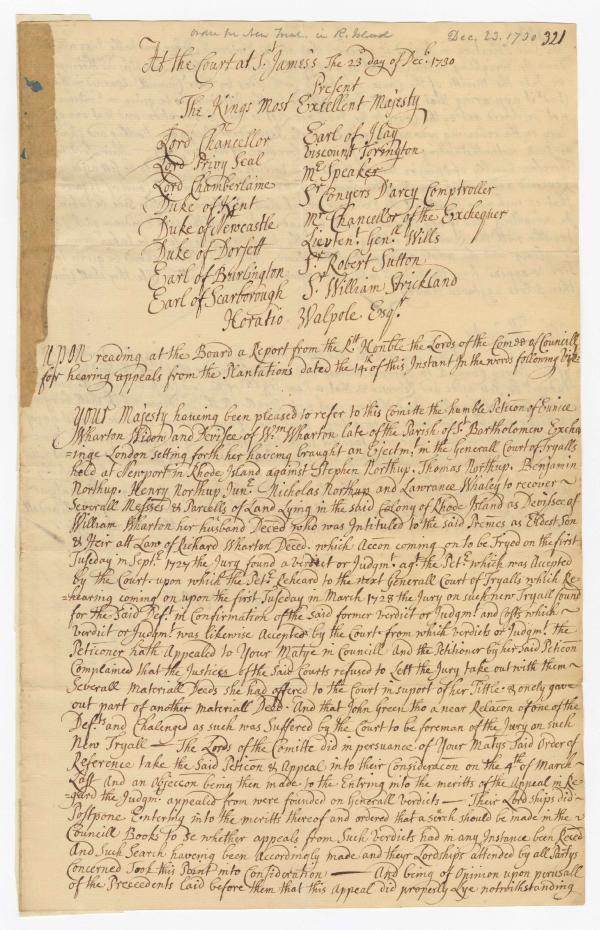 order for New Trial in R. Island Dec. 23. 1730 321
At the Court at St Jamess The 23d day of Decbr. 1730
Present
The Kings Most Excellent Majesty
Lord Chancellor Earl of Ilay
Lord Privy Seal Viscount Torington
Lord Chamberlaine Mr Speaker
Duke of Kent Sr Conyers D'arcy Comptroller
Duke of Newcastle Mr Chancellor of the Exchequer
Duke of Dorsett Lieutent. Genll. Wills
Earl of Burlington Sr. Robert Sutton
Earl of Scarborough Sr. William Strickland
Horatio Walpole Esqr.
Upon reading at the Board a Report from the Rt Honble the Lords of the Comee of Councill
for hearing appeals from the Plantations dated the 14th of this Instant In the words following
Your Majesty haveing been pleased to refer to this Comitte the humble Peticon of Eunice
Wharton Widow and Devisee of Wm Wharton late of the Parish of St Bartholomew Excha
=inge London setting forth her haveing braught an Ejectmt. in the Generall Court of Tryalls
held at Newport in Rhode Island against Stephen Northup. Thomas Northup. Benjamin
Northup. Henry Northup Junr. Nicholas Northup and Lawrance Whaley to recover
Severall Messes & Parcells of Land Lying in the said Colony of Rhode Island as Devitsee of
William Wharton her husband Deced. who was Intituled to the said Premes as Eldest Son
& Heir att Law of Richard Wharton Deced. which Accon coming on to be Tryed on the first
Tuseday in Septr. 1727 the Jury found a Verdict or Judgmt. agt. the Petr. which was Accepted
by the Court. upon which the Petr. Reheard to the next Generall Court of Tryalls which Re-
=hearing coming on upon the first Tuseday in March 1728 the Jury on such new Tryall found
for the Said Defts. in Confirmation of the Said former verdict or Judgmt. and Costs which
Verdict or Judgmt. was likewise Accepted by the Court. from which verdicts or Judgmts. the
Peticoner hath Appealed to Your Matye in Councill And the Petitioner by her Said Peticon
Complained that the Justices of the Said Courts refused to Lett the Jury take out with them
Severall Materiall Deeds she had offered to the Court in suport of her Tittle. & onely gave
out part of another materiall Deed. And that John Green tho a near Relacon of one of the
Defts. and Chalenged as such was Suffered by the Court to be foreman of the Jury on such
New Tryall — The Lords of the Comitte did in persuance of Your Matys Said Order of
Reference take the Said Peticon & Appeal into their Consideracon on the 4th of March
Last And an objeccon being then made to the Entring into the meritts of the Appeal in Re
=gard the Judgmts. appealed from were founded on Generall Verdicts — Their Lordships did
Postpone Entering into the meritts thereof and ordered that a serch should be made in the
Councill Books to Se whether appeals from Such Verdicts had in any Instance been
And Such Search haveing been Accordingly made and their Lordships attended by all Partys
Concerned Took this Point into Consideration — And being of Opinion upon perusall
of the Precedents laid before them that this Appeal did properly Lye notwithstanding